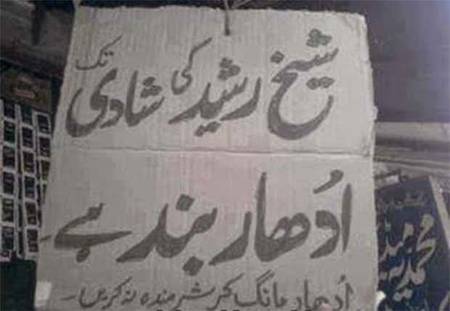 شیخ رشید کی شادی تک
اُدھار بند ہے۔
اُدھار مانگ کر شرمندہ نہ کریں۔
محمدیہ